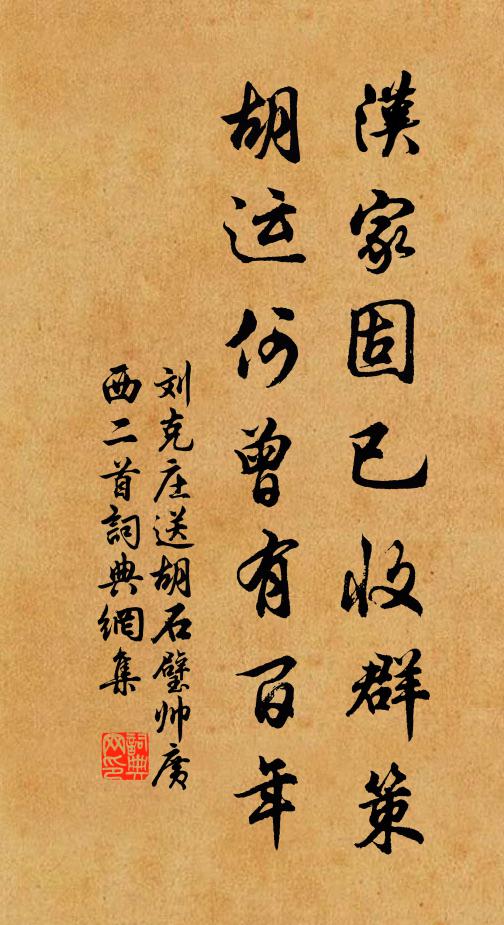 漢家固已收群策
胡运何曾有百年
刘克庄送胡石壁帅廣
西二首詞典網集
詞典
网印